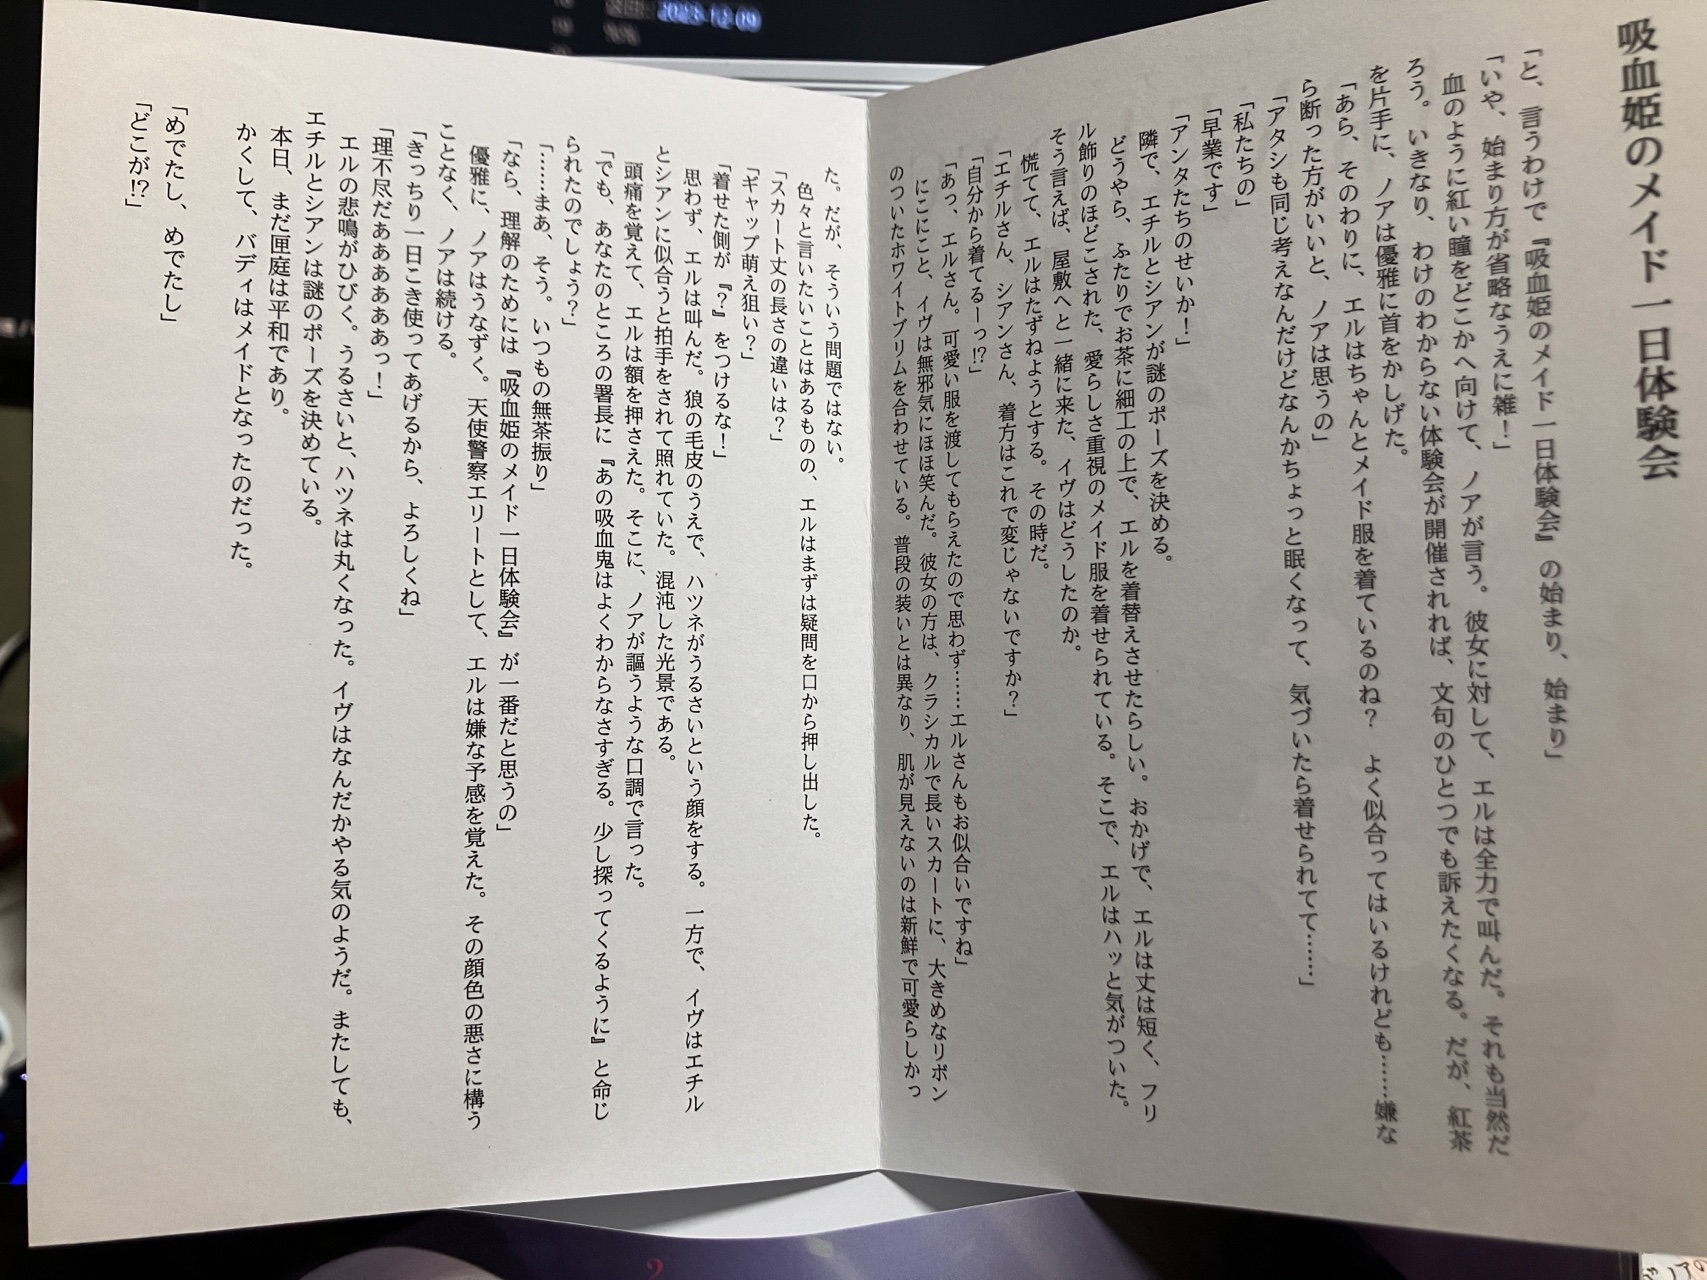 吸血姫のメイド一日体験会
「と、言うわけで『吸血姫のメイド一日体験会』の始まり、始まり」
「いや、始まり方が省略なうえに雑！」
血のように紅い瞳をどこかへ向けて、ノアが言う。彼女に対して、エルは全力で叫んだ。それも当然だ
ろう。いきなり、わけのわからない体験会が開催されれば、文句のひとつでも訴えたくなる。だが、紅茶
を片手に、ノアは優雅に首をかしげた。
「あら、そのわりに、エルはちゃんとメイド服を着ているのね？　よく似合ってはいるけれども……嫌な
ら断った方がいいと、ノアは思うの」
「アタシも同じ考えなんだけどなんかちょっと眠くなって、気づいたら着せられてて……」
「私たちの」
「早業です」
「アンタたちのせいか！」
隣で、エチルとシアンが謎のポーズを決める。
どうやら、ふたりでお茶に細工の上で、エルを着替えさせたらしい。おかげで、エルは丈は短く、フリ
ル飾りのほどこされた、愛らしさ重視のメイド服を着せられている。そこで、エルはハッと気がついた。
そう言えば、屋敷へと一緒に来た、イヴはどうしたのか。
慌てて、エルはたずねようとする。その時だ。
「エチルさん、シアンさん、着方はこれで変じゃないですか？」
「自分から着てるーっ⁉」
「あっ、エルさん。可愛い服を渡してもらえたので思わず……エルさんもお似合いですね」
にこにこと、イヴは無邪気にほほ笑んだ。彼女の方は、クラシカルで長いスカートに、大きめなリボン
のついたホワイトブリムを合わせている。普段の装いとは異なり、肌が見えないのは新鮮で可愛らしかっ
た。だが、そういう問題ではない。
色々と言いたいことはあるものの、エルはまずは疑問を口から押し出した。
「スカート丈の長さの違いは？」
「ギャップ萌え狙い？」
「着せた側が『？』をつけるな！」
思わず、エルは叫んだ。狼の毛皮のうえで、ハツネがうるさいという顔をする。一方で、イヴはエチル
とシアンに似合うと拍手をされて照れていた。混沌した光景である。
頭痛を覚えて、エルは額を押さえた。そこに、ノアが謳うような口調で言った。
「でも、あなたのところの署長に『あの吸血鬼はよくわからなさすぎる。少し探ってくるように』と命じ
られたのでしょう？」
「……まあ、そう。いつもの無茶振り」
「なら、理解のためには『吸血姫のメイド一日体験会』が一番だと思うの」
優雅に、ノアはうなずく。天使警察エリートとして、エルは嫌な予感を覚えた。その顔色の悪さに構う
ことなく、ノアは続ける。
「きっちり一日こき使ってあげるから、よろしくね」
「理不尽だあああああっ！」
エルの悲鳴がひびく。うるさいと、ハツネは丸くなった。イヴはなんだかやる気のようだ。またしても、
エチルとシアンは謎のポーズを決めている。
本日、まだ匣庭は平和であり。
かくして、バディはメイドとなったのだった。
「めでたし、めでたし」
「どこが⁉」
2023-12-09
90%